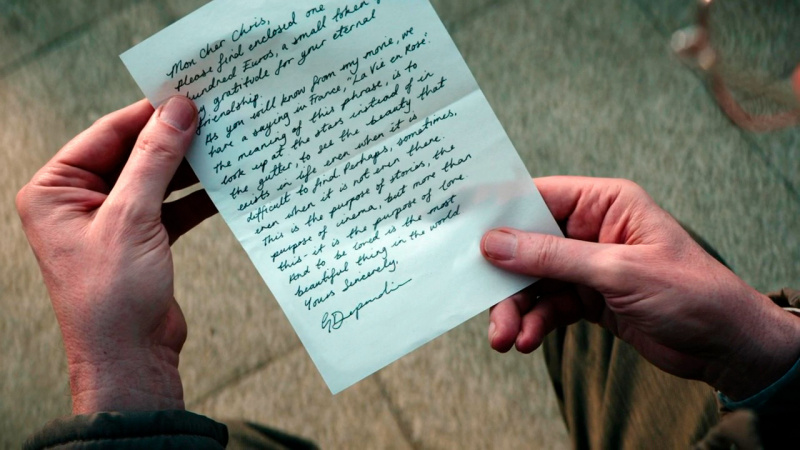 Mon Cher Chris,
Please find enclosed one
hundred Euros, a small token
my gratitude for your eternal
friendship.
As you will know from my movie, we
have a saying in France, "La Vie en Rose".
The meaning of this phrase, is to
look up at the stars instead of in
the gutter, to see the beauty that
exists in life even when it is
difficult to find. Perhaps, sometimes,
even when it is not even there.
This is the purpose of stories, the
purpose of cinema, but more than
this - it is the purpose of love.
And to be loved is the most
beautiful thing in the world.
Yours Sincerely,